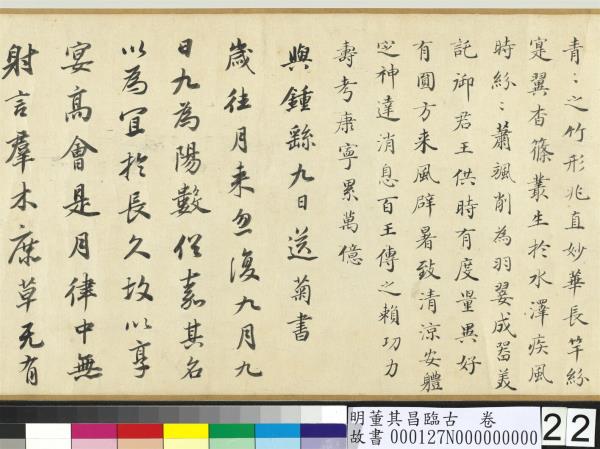 青〻之竹形兆直妙華長竿紛
寔翼杳篠叢生於水澤疾風
時紛〻蕭颯削為羽翣成器美
託御君王供時有度量異好
有圓方来風辟暑致清涼安體
定神達消息百王傳之賴功力
壽考康寧累萬億
與鍾繇九日送菊書
歲往月来忽復九月九
日九為陽數俗嘉其名
以為宜於長久故以享
宴高會是月律中無
射言羣木庶草无有
明董其昌臨古 卷
故書 000127N000000000
22